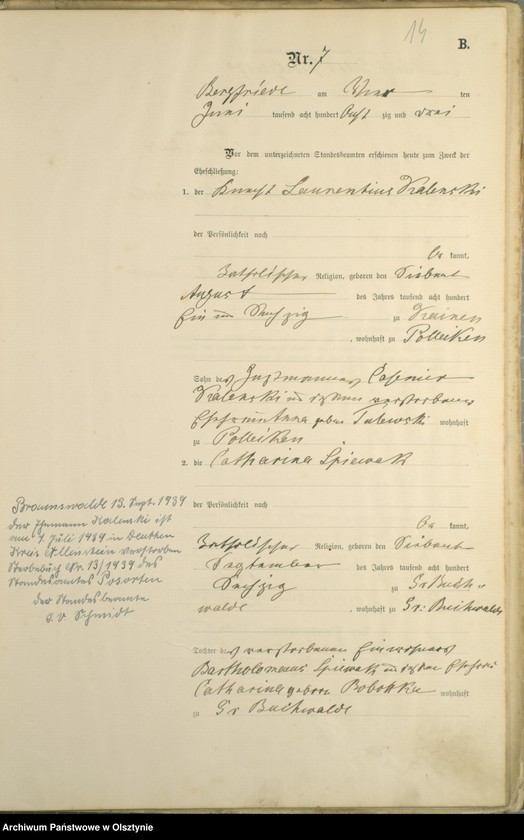 14
B.
Nr. 7
Bergfriede am Vier ten
Juni tausend acht hundert Acht zig und drei
Vor dem unterzeichneten Standesbeamten erschienen heute zum Zweck der
Eheschließung:
1. der Knecht Laurentius Kalenski
der Persönlichkeit nach
be kannt,
katholischer Religion, geboren den Siebent
August des Jahres tausend acht hundert
Ein und Sechzig zu
, wohnhaft zu Polleiken
Sohn des Instmannes Casimir
Kalenski und dessen verstorbenen
Ehefrau Anna geboren wohnhaft
zu Polleiken
2. die Catharina Spiewak
der Persönlichkeit nach
be kannt,
katholischer Religion, geboren den Siebent
September des Jahres tausend acht hundert
Sechzig zu Gr Buch
walde, wohnhaft zu Gr: Buchwalde
Tochter des verstorbenen Einwohners
Bartholomäus Spiewak und dessen Ehefrau
Catharina geboren wohnhaft
zu Gr Buchwalde
Braunswalde 13. Sept. 1939
Der Ehemann Kalenski ist
am 7. Juli 1939 in
Kreis Allenstein verstorben
Sterbebuch Nr. 13/1939 des
Standesamtes Posorten
der Standesbeamte
I. V. Schmidt
Archiwum Państwowe w Olsztynie